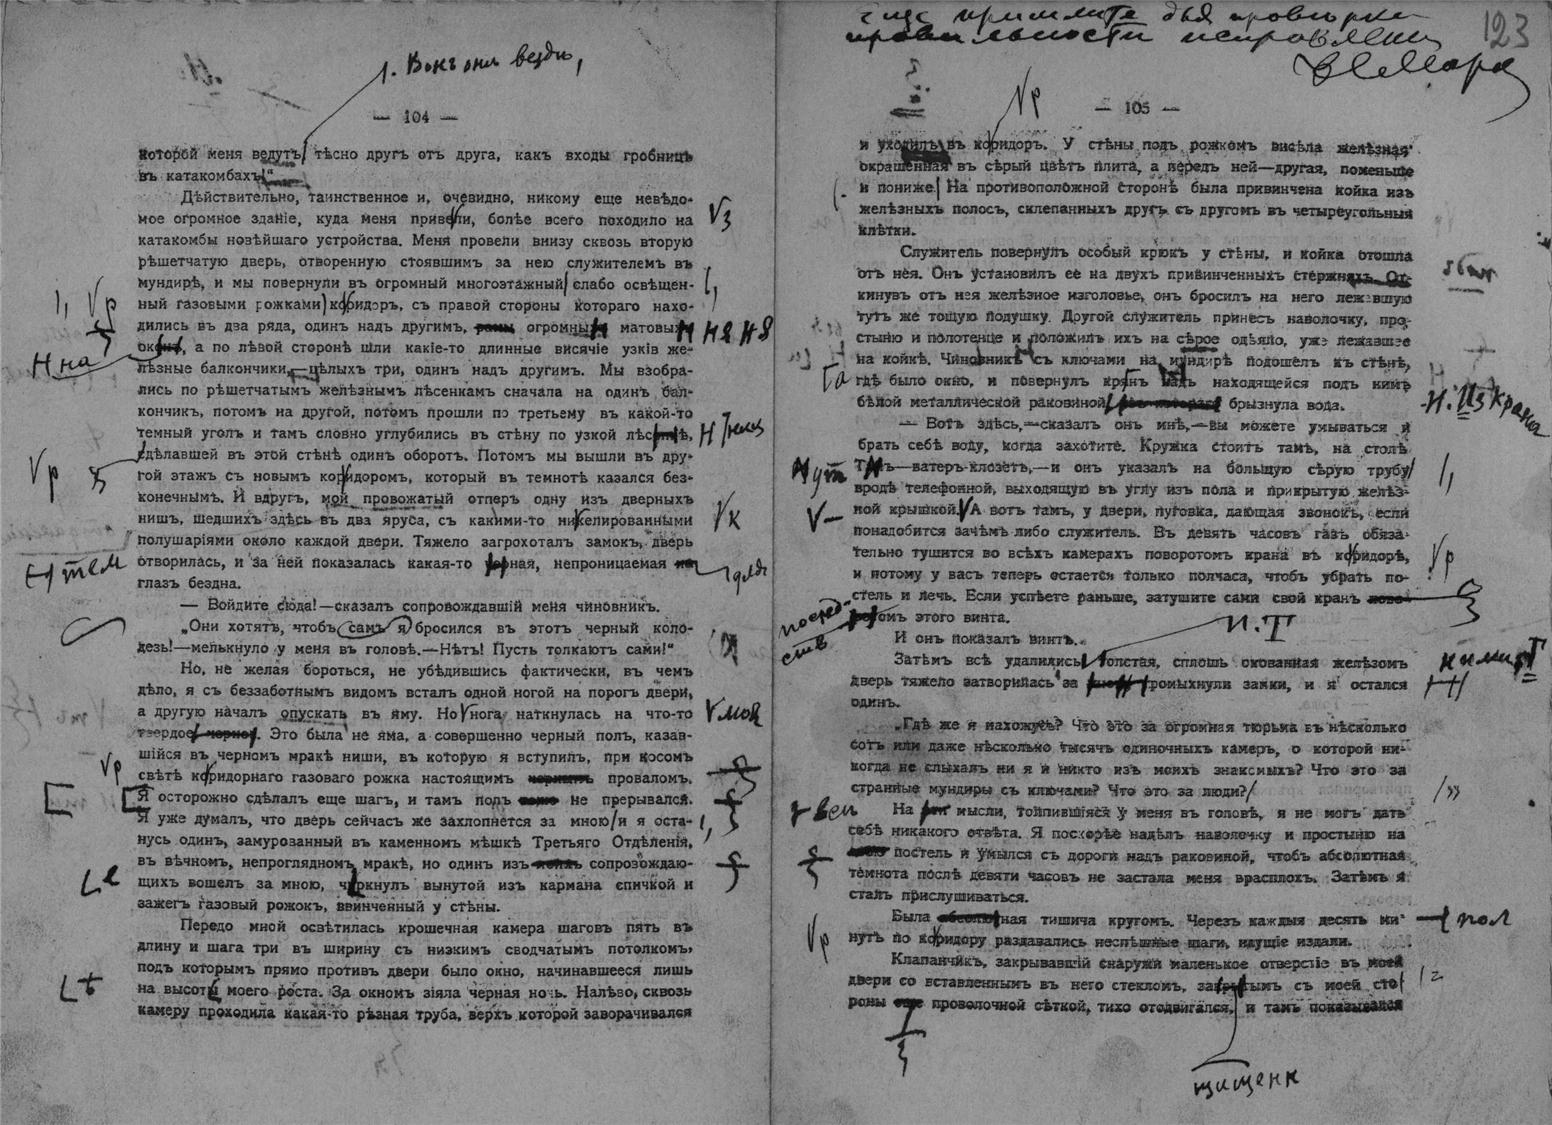 1. Вонъ они везде,
— 104 —
которой меня ведутъ тѣсно другъ отъ друга, какъ входы гробницъ
въ катакомбахъ!“
Дѣйствительно, таинственное и, очевидно, никому еще невѣдо-
мое огромное зданіе, куда меня привели, болѣе всего походило на
катакомбы новѣйшаго устройства. Меня провели внизу сквозь вторую
рѣшетчатую дверь, отворенную стоявшимъ за нею служителемъ въ
мундирѣ, и мы повернули въ огромный многоэтажный слабо освѣщен-
ный газовыми рожками коридоръ, съ правой стороны котораго нахо-
дились въ два ряда, одинъ надъ другимъ, огромны матовы
ок, а по лѣвой сторонѣ шли какіе-то длинные висячіе узкіе же-
лѣзные балкончики,—цѣлыхъ три, одинъ надъ другимъ. Мы взобра-
лись по рѣшетчатымъ желѣзнымъ лѣсенкамъ сначала на одинъ бал-
кончикъ, потомъ на другой, потомъ прошли по третьему въ какой-то
темный уголъ и тамъ словно углубились въ стѣну по узкой лѣс,
сдѣлавшей въ этой стѣнѣ одинъ оборотъ. Потомъ мы вышли въ дру-
гой этажъ съ новымъ коридоромъ, который въ темнотѣ казался без-
конечнымъ. И вдругъ, мой провожатый отперъ одну изъ дверныхъ
нишъ, шедшихъ здѣсь въ два яруса, съ какими-то никелированными
полушаріями около каждой двери. Тяжело загрохоталъ замокъ, дверь
отворилась, и за ней показалась какая-то ная, непроницаемая для
глазъ бездна.
— Войдите сюда!—сказалъ сопровождавшій меня чиновникъ.
„Они хотятъ, чтобъ самъ я бросился въ этотъ черный коло-
дезь!—мелькнуло у меня въ головѣ.—Нѣтъ! Пусть толкаютъ сами!“
Но, не желая бороться, не убѣдившись фактически, въ чемъ
дѣло, я съ беззаботнымъ видомъ всталъ одной ногой на порогъ двери,
а другую началъ опускать въ яму. Но нога наткнулась на что-то
твердое. Это была не яма, а совершенно черный полъ, казав-
шійся въ черномъ мракѣ ниши, въ которую я вступилъ, при косомъ
свѣтѣ коридорнаго газоваго рожка настоящимъ проваломъ.
Я осторожно сдѣлалъ еще шагъ, и тамъ полъ не прерывался.
Я уже думалъ, что дверь сейчасъ же захлопнется за мною и я оста-
нусь одинъ, замурованный въ каменномъ мѣшкѣ Третьяго Отдѣленія,
въ вѣчномъ, непроглядномъ мракѣ, но одинъ изъ сопровождаю-
щихъ вошелъ за мною, чркнулъ вынутой изъ кармана спичкой и
зажегъ газовый рожокъ, ввинченный у стѣны.
Передо мной освѣтилась крошечная камера шаговъ пять въ
длину и шага три въ ширину съ низкимъ сводчатымъ потолкомъ,
подъ которымъ прямо противъ двери было окно, начинавшееся лишь
на высоты моего роста. За окномъ зіяла черная ночь. Налѣво, сквозь
камеру проходила какая-то рѣзная труба, верхъ которой заворачивался
пришлите для провѣрки
правильности исправлени
123
— 105 —
и уходилъ въ коридоръ. У стѣны подъ рожкомъ висѣла желѣзная
окрашенная въ сѣрый цвѣтъ плита, а передъ ней—другая, поменьше
и пониже. На противоположной сторонѣ была привинчена койка изъ
желѣзныхъ полосъ, склепанныхъ другъ съ другомъ въ четыреугольныя
клѣтки.
Служитель повернулъ особый крюкъ у стѣны, и койка отошла
отъ нея. Онъ установилъ ее на двухъ привинченныхъ стержняхъ. От-
кинувъ отъ нея желѣзное изголовье, онъ бросилъ на него лежавшую
тутъ же тощую подушку. Другой служитель принесъ наволочку, про-
стыню и полотенце и положилъ ихъ на сѣрое одѣяло, уже лежавшее
на койкѣ. Чиновникъ съ ключами на мундирѣ подошелъ къ стѣнѣ,
гдѣ было окно, и повернулъ кранъ надъ находящейся подъ нимъ
бѣлой металлической раковиной, брызнула вода.
Изъ крана
— Вотъ здѣсь,—сказалъ онъ мнѣ,—вы можете умываться и
брать себѣ воду, когда захотите. Кружка стоитъ тамъ, на столѣ
Т—ватеръ-клозетъ,—и онъ указалъ на большую сѣрую трубу
вродѣ телефонной, выходящую въ углу изъ пола и прикрытую желѣз-
ной крышкой. А вотъ тамъ, у двери, пуговка, дающая звонокъ, если
понадобится зачѣмъ-либо служитель. Въ девять часовъ газъ обяза-
тельно тушится во всѣхъ камерахъ поворотомъ крана въ коридорѣ,
и потому у васъ теперь остается только полчаса, чтобъ убрать по-
стель и лечь. Если успѣете раньше, затушите сами свой кранъ
посред-
ств
омъ этого винта.
И онъ показалъ винтъ.
Затѣмъ всѣ удалились толстая, сплошь окованная желѣзомъ
дверь тяжело затворилась за громыхнули замки, и я остался
ними
одинъ.
„Гдѣ же я нахожусь? Что это за огромная тюрьма въ нѣсколько
сотъ или даже нѣсколько тысячъ одиночныхъ камеръ, о которой ни-
когда не слыхалъ ни я и никто изъ моихъ знакомыхъ? Что это за
странные мундиры съ ключами? Что это за люди?
На мысли, толпившіяся у меня въ головѣ, я не могъ дать
себѣ никакого отвѣта. Я поскорѣе надѣлъ наволочку и простыню на
постель и умылся съ дороги надъ раковиной, чтобъ абсолютная
темнота послѣ девяти часовъ не застала меня врасплохъ. Затѣмъ я
сталъ прислушиваться.
Была ная тишина кругомъ. Черезъ каждыя десять ми-
пол
нутъ по коридору раздавались неспѣшные шаги, идущіе издали.
Клапанчикъ, закрывавшій снаружи маленькое отверстіе въ моей
двери со вставленнымъ въ него стекломъ, зтымъ съ моей сто-
роны проволочной сѣткой, тихо отодвигался, и тамъ показывался
щищенн